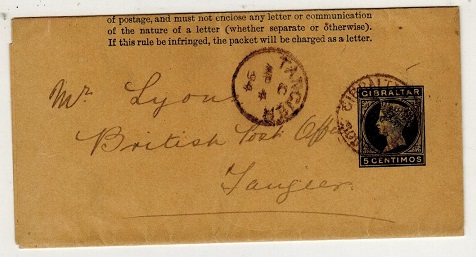 of postage, and must not enclose any letter or communication
of the nature of a letter (whether separate or otherwise).
If this rule be infringed, the packet will be charged as a letter.
TANGIER
94
GIBRALTAR
GIBRALTAR
5 CENTIMOS
Mr Lyon
British Post Office
Tangier